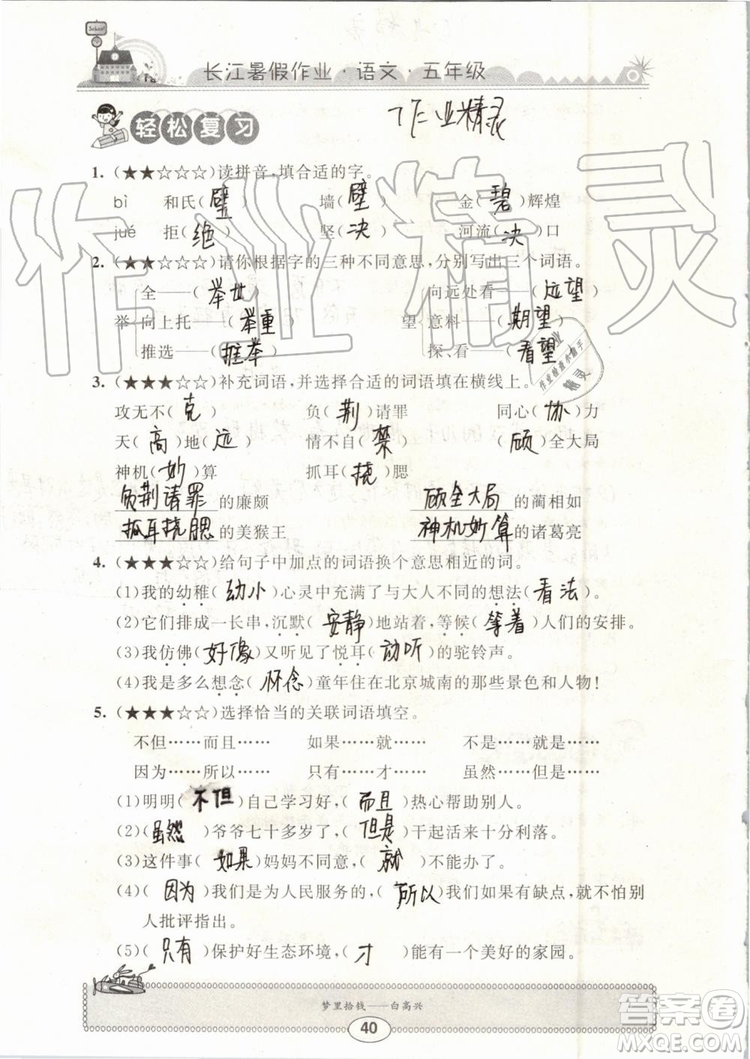 School
长江暑假作业·语文·五年级
轻松复习
作业精灵
1. (★★☆☆☆)读拼音,填合适的字。
bì 和氏(璧) 墙(壁) 金(碧)辉煌
jué 拒(绝) 坚(决) 河流(决)口
2. (★★☆☆☆)请你根据字的三种不同意思,分别写出三个词语。
全——(举世) 向远处看——(远望)
举 向上托——(举重) 望 意料——(期望)
推选——(推举) 探、看——(看望)
3. (★★☆☆☆)补充词语,并选择合适的词语填在横线上。
攻无不(克) 负(荆)请罪 同心(协)力
天(高)地(远) 情不自(禁) (顾)全大局
神机(妙)算 抓耳(挠)腮
负荆请罪的廉颇 顾全大局的蔺相如
抓耳挠腮的美猴王 神机妙算的诸葛亮
4. (★★★☆☆)给句子中加点的词语换个意思相近的词。
(1)我的幼稚(幼小)心灵中充满了与大人不同的想法(看法)。
(2)它们排成一长串,沉默(安静)地站着,等候(等着)人们的安排。
(3)我仿佛(好像)又听见了悦耳(动听)的驼铃声。
(4)我是多么想念(怀念)童年住在北京城南的那些景色和人物!
5. (★★★☆☆)选择恰当的关联词语填空。
不但……而且…… 如果……就…… 不是……就是……
因为……所以…… 只有……才…… 虽然……但是……
(1)明明(不但)自己学习好,(而且)热心帮助别人。
(2)(虽然)爷爷七十多岁了,(但是)干起活来十分利落。
(3)这件事(如果)妈妈不同意,(就)不能办了。
(4)(因为)我们是为人民服务的,(所以)我们如果有缺点,就不怕别
人批评指出。
(5)(只有)保护好生态环境,(才)能有一个美好的家园。
梦里拾钱——白高兴
40
作业精灵
答案圈
MXQE.COM